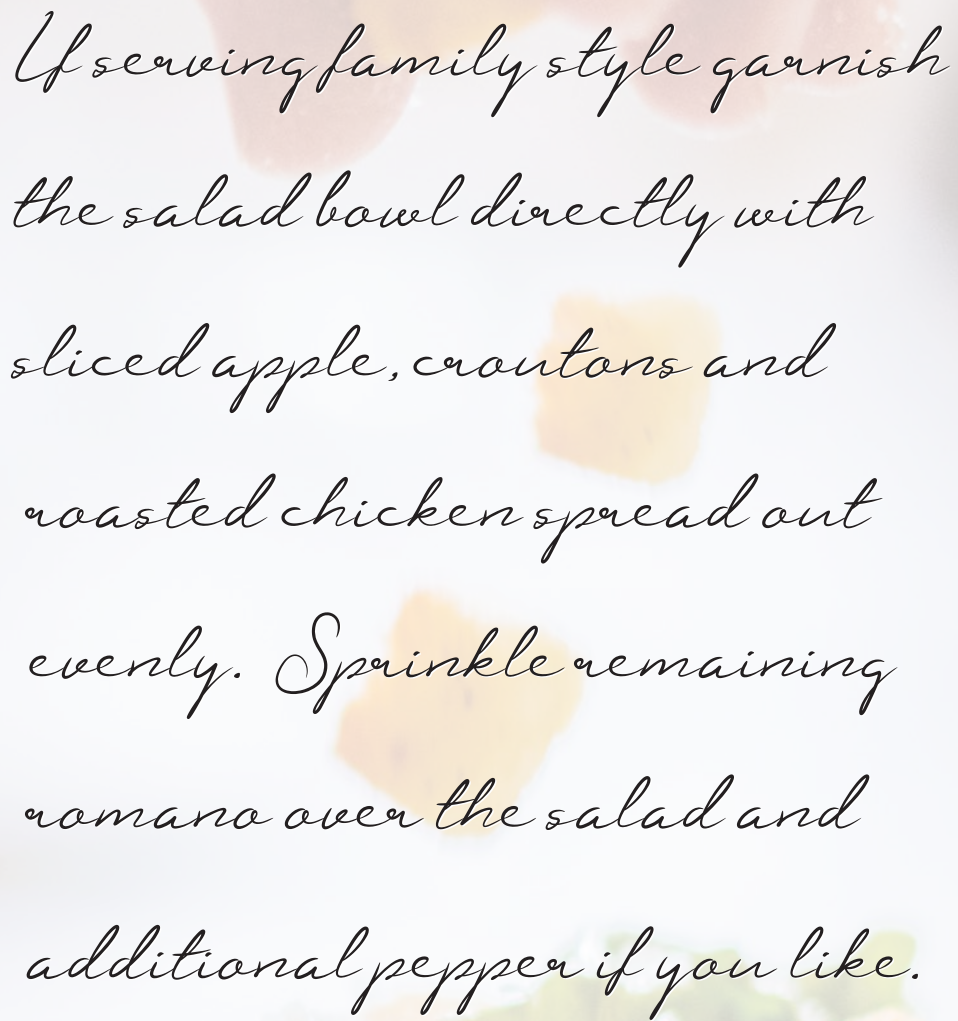 If serving family style garnish
the salad bowl directly with
sliced apple, croutons and
roasted chicken spread out
evenly. Sprinkle remaining
romano over the salad and
additional pepper if you like.